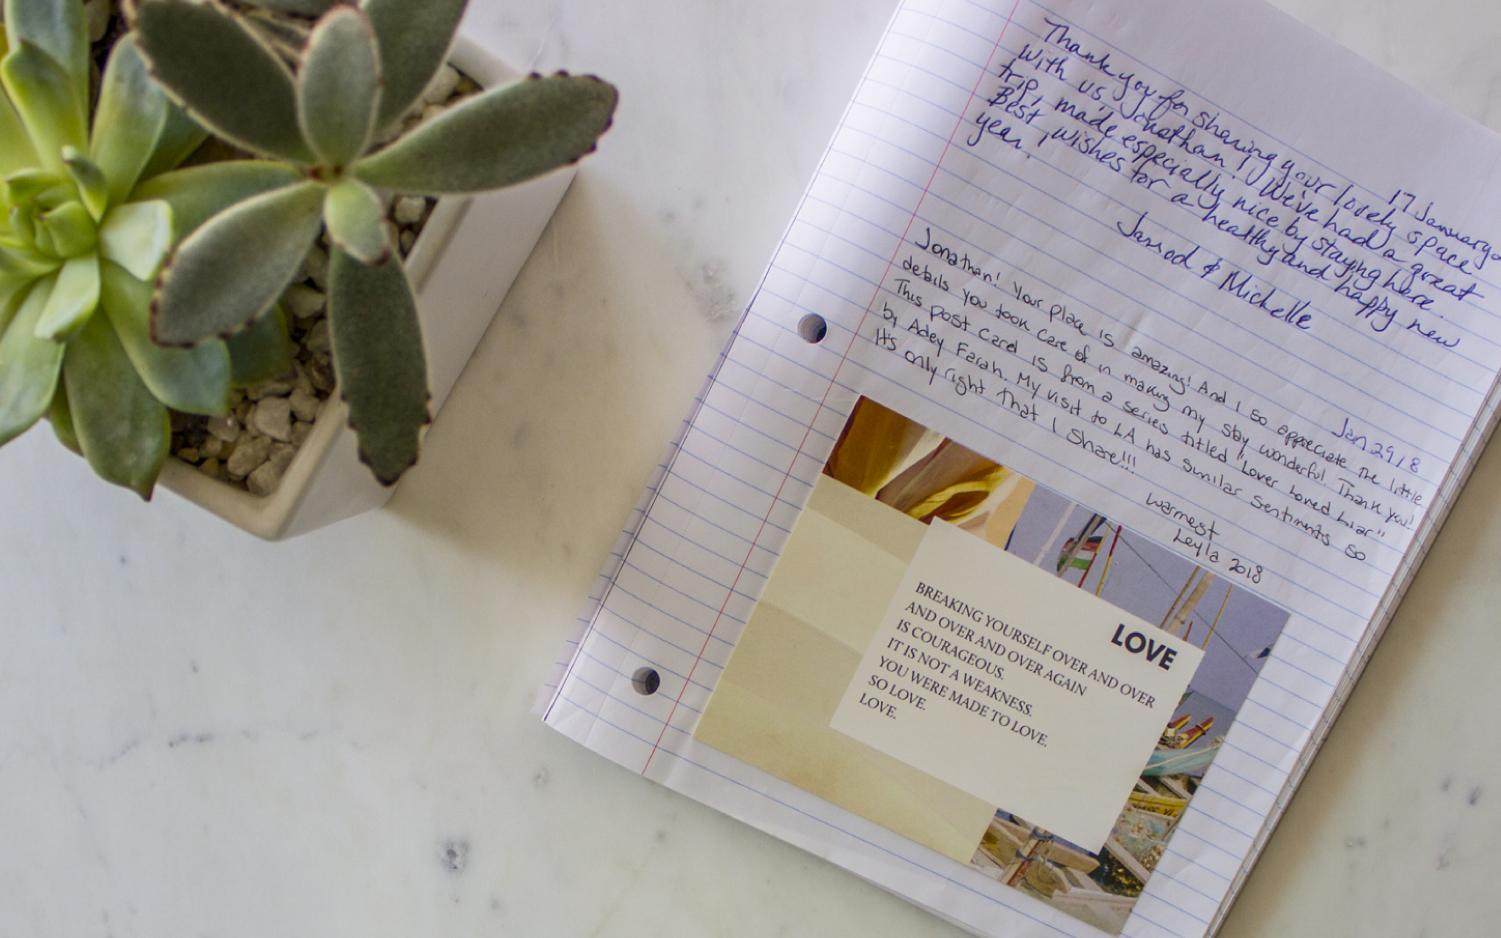 17 January
Thank you for sharing your lovely space
with us, Jonathan! We've had a great
trip, made especially nice by staying here.
Best wishes for a healthy and happy new
year.
Jarrod & Michelle
Jan 29, 18
Jonathan! Your place is amazing! And I so appreciate the little
details you took care of in making my stay wonderful! Thank you!
This post card is from a series titled "Lover Loved Liar"
by Adey Farah. My visit to LA has similar sentiments so
It's only right that I share!!!
Warmest
Leyla 2018
LOVE
BREAKING YOURSELF OVER AND OVER
AND OVER AND OVER AGAIN
IS COURAGEOUS.
IT IS NOT A WEAKNESS.
YOU WERE MADE TO LOVE.
SO LOVE.
LOVE.